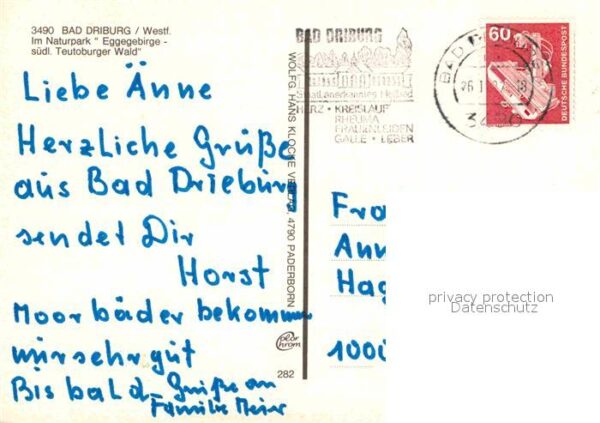 3490 BAD DRIBURG / Westf.
Im Naturpark " Eggegebirge -
südl. Teutoburger Wald"
Liebe Änne
Herzliche Grüße
aus Bad Drieburg
sendet Dir
Horst
Moorbäder bekommen
mir sehr gut
Bis bald - Grüße an
Familie Meier
WOLFG. HANS KLOCKE VERLAG, 4790 PADERBORN
color
chrom
282
BAD DRIBURG
Staatl. anerkanntes Heilbad
HERZ · KREISLAUF
RHEUMA
FRAUENLEIDEN
GALLE · LEBER
BAD
3490
60
DEUTSCHE BUNDESPOST
Fra
Ann
Hag
1000
privacy protection
Datenschutz